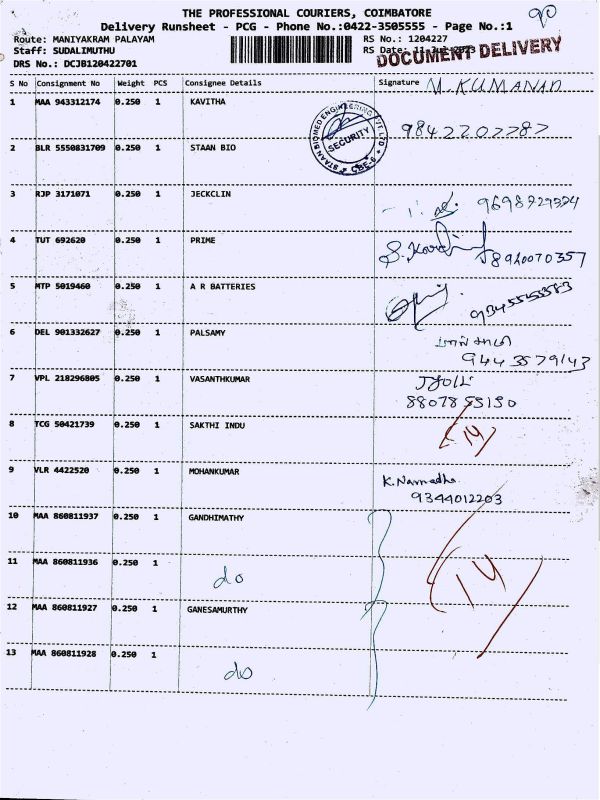 THE PROFESSIONAL COURIERS, COIMBATORE
Delivery Runsheet - PCG - Phone No.:0422-3505555 - Page No.:1
Route: MANIYAKRAM PALAYAM
RS No.: 1204227
Staff: SUDALIMUTHU
RS Date: 11-Jul-2023
DRS No.: DCJB120422701
DOCUMENT DELIVERY
S No Consignment No Weight PCS Consignee Details Signature
M. KUMANAN
1 MAA 943312174 0.250 1 KAVITHA
STAAN BIOMED ENGINEERING PVT LTD
SECURITY
CBE-6
2 BLR 5550831709 0.250 1 STAAN BIO
3 RJP 3171071 0.250 1 JECKCLIN
4 TUT 692620 0.250 1 PRIME
8940070357
5 MTP 5019460 0.250 1 A R BATTERIES
6 DEL 901332627 0.250 1 PALSAMY
9443579143
7 VPL 218296805 0.250 1 VASANTHKUMAR
8 TCG 50421739 0.250 1 SAKTHI INDU
14
9 VLR 4422520 0.250 1 MOHANKUMAR
K. Narmadha
9344012203
10 MAA 860811937 0.250 1 GANDHIMATHY
11 MAA 860811936 0.250 1 do
14
12 MAA 860811927 0.250 1 GANESAMURTHY
13 MAA 860811928 0.250 1 do